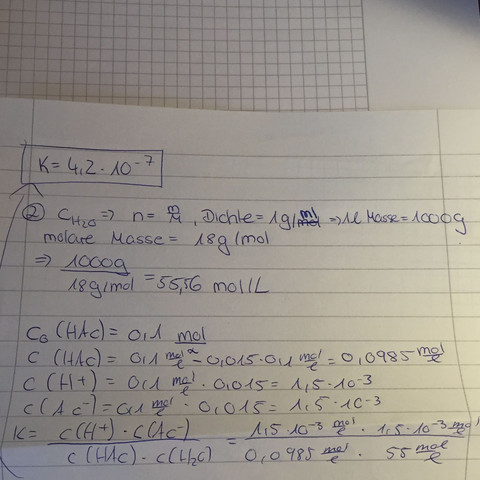 K = 4,2 · 10⁻⁷
② C_H₂O ⇒ n = m/M, Dichte = 1g/ml ⇒ 1l Masse = 1000g
molare Masse = 18g/mol
⇒ 1000g / 18g/mol = 55,56 mol/L
C₀ (HAc) = 0,1 mol
C (HAc) = 0,1 mol/l - 0,015 · 0,1 mol/l = 0,0985 mol/l
C (H+) = 0,1 mol/l · 0,015 = 1,5 · 10⁻³
C (Ac⁻) = 0,1 mol/l · 0,015 = 1,5 · 10⁻³
K = C(H+) · C(Ac⁻) / C(HAc) · C(H₂O) = 1,5 · 10⁻³ mol/l · 1,5 · 10⁻³ mol/l / 0,0985 mol/l · 55 mol/l